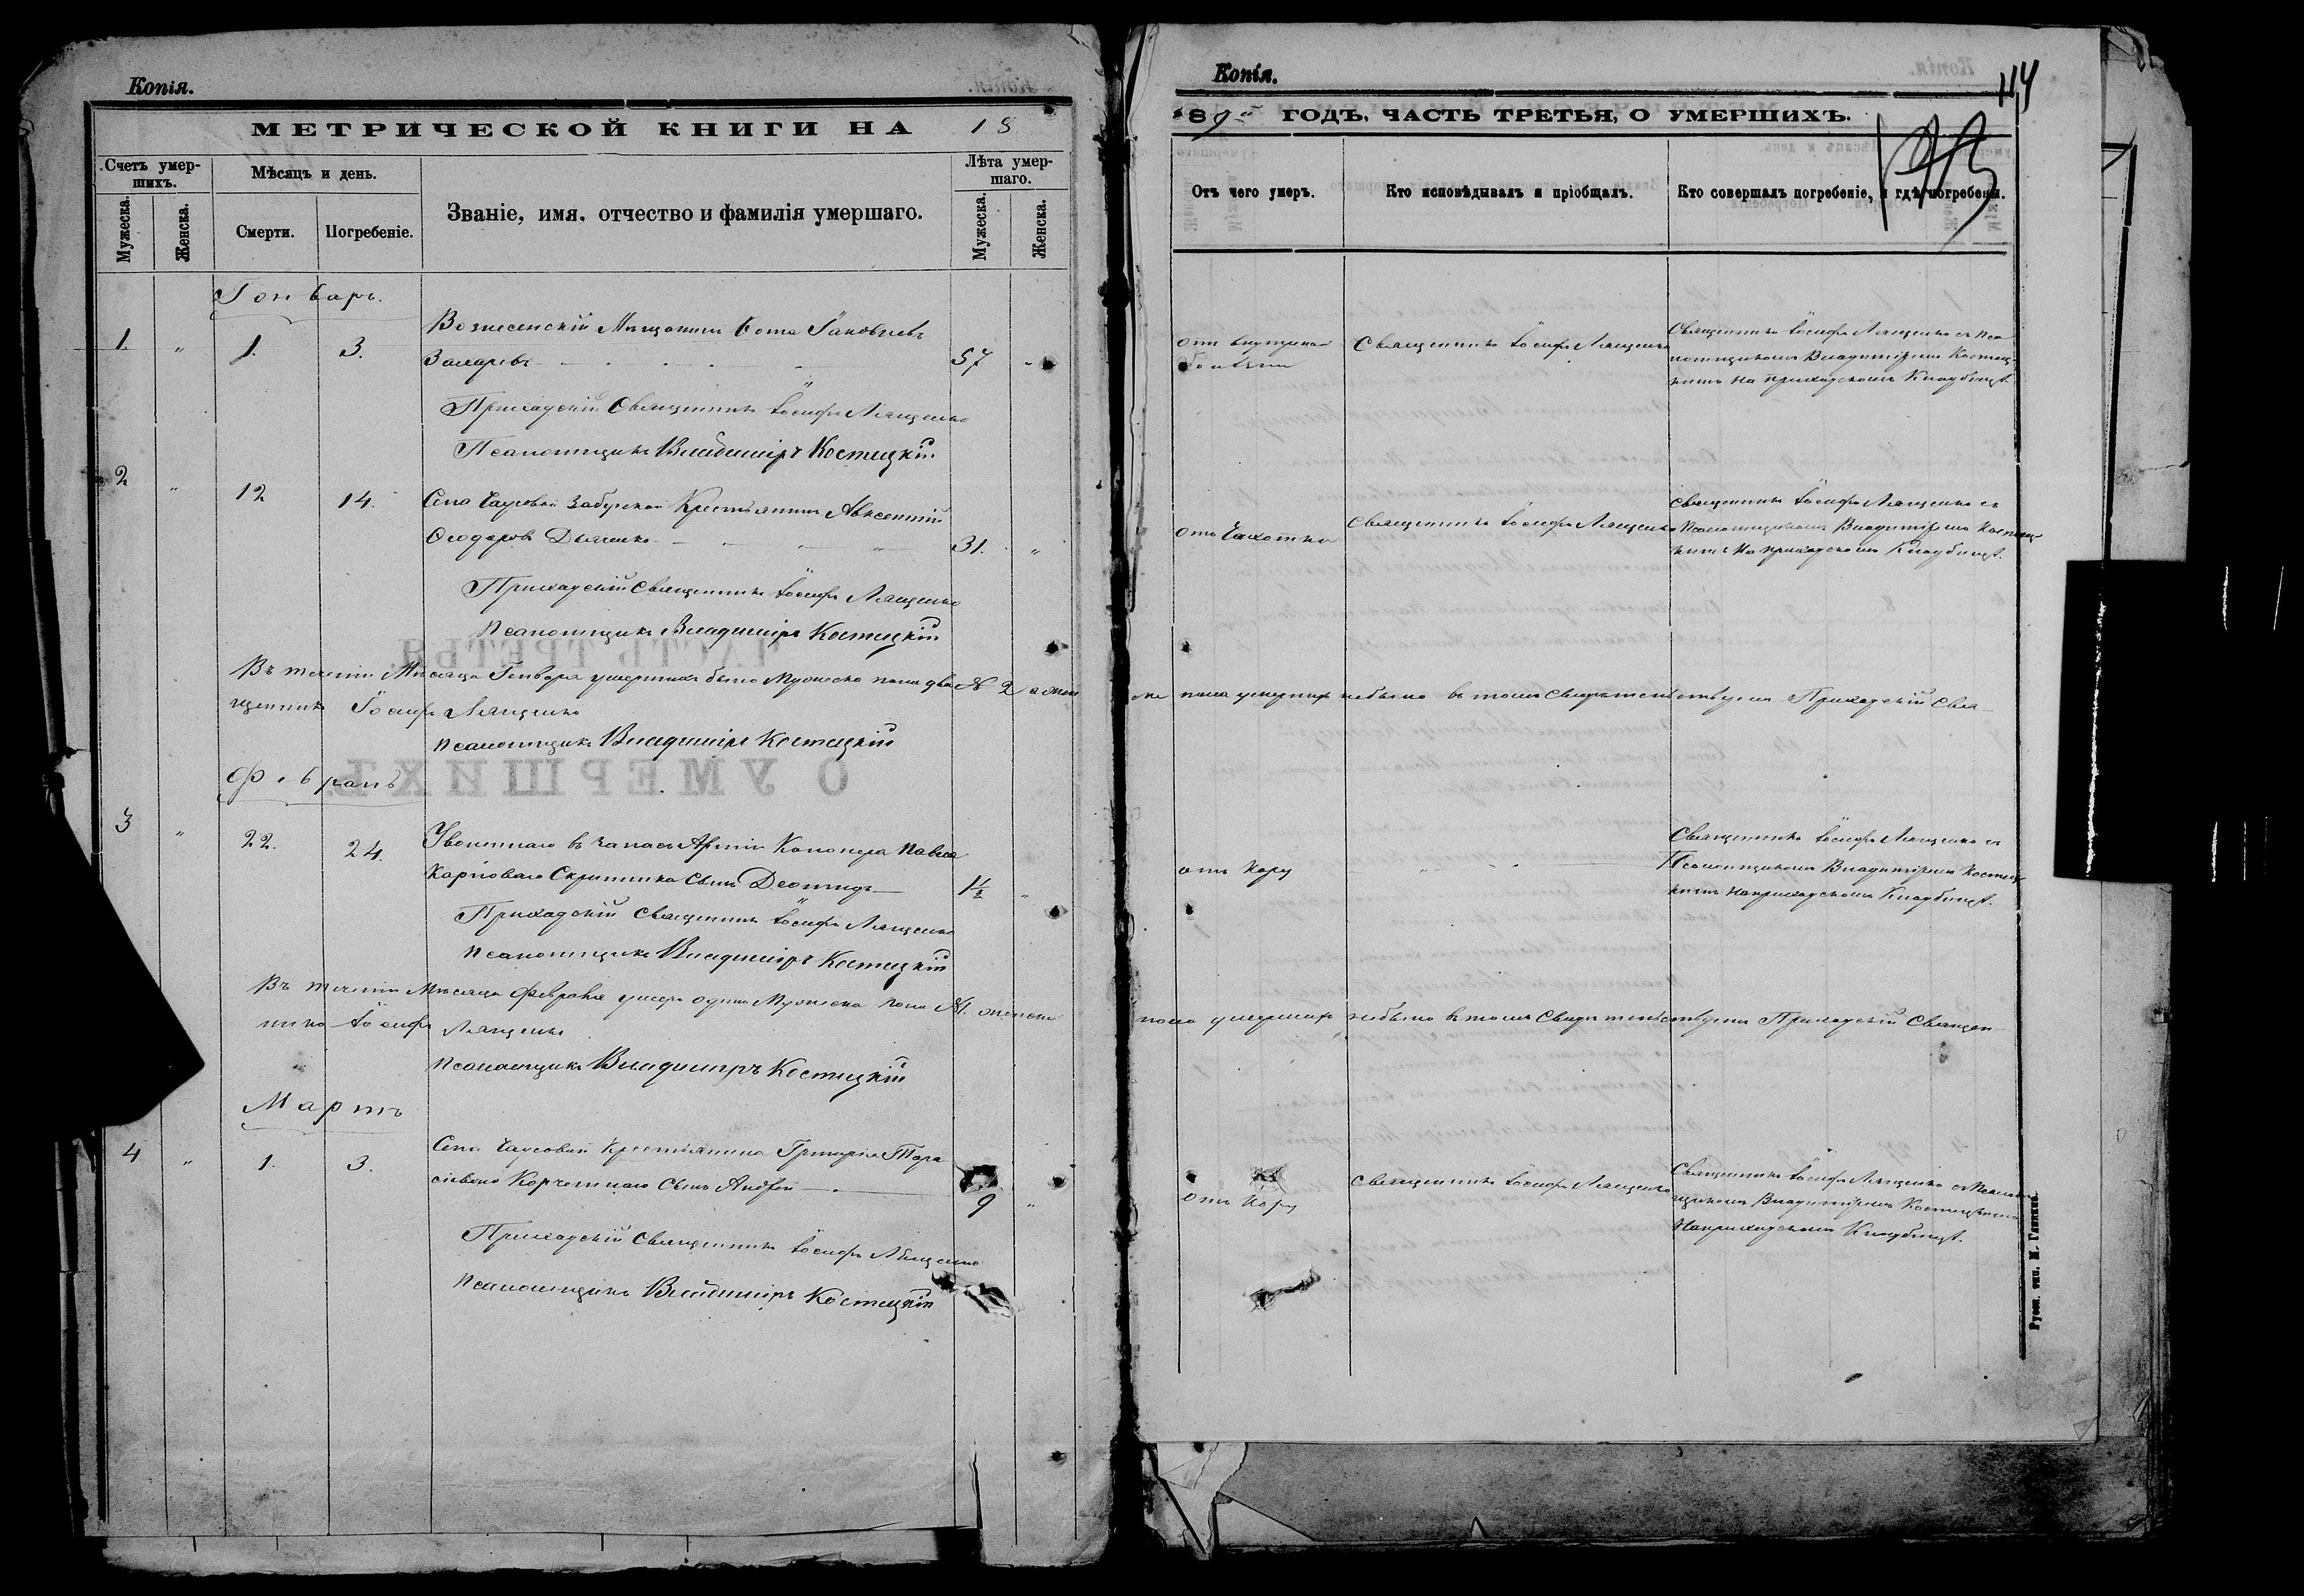 Копія.
МЕТРИЧЕСКОЙ КНИГИ НА 18
Счетъ умер-
шихъ.
Мужеска.
Женска.
Мѣсяцъ и день.
Смерти.
Погребеніе.
Званіе, имя, отчество и фамилія умершаго.
Лѣта умер-
шаго.
Мужеска.
Женска.
Генварь.
1. " 1. 3.
Вознесенскій Мѣщанинъ Ѳома Яковлевъ
57 "
Приходскій Священникъ Іосифъ Лященко
Псаломщикъ Владиміръ Костецкій
2 " 12 14.
Села Чаусовой Забугской Крестьянинъ Авксентій
Ѳеодоровъ Дяченко 31. "
Приходскій Священникъ Іосифъ Лященко
Псаломщикъ Владиміръ Костецкій
Въ теченіи Мѣсяца Генваря умершихъ было Мужеска пола два № 2 а жен
щенникъ Іосифъ Лященко
Псаломщикъ Владиміръ Костецкій
Февраль
3 " 22. 24.
Уволеннаго въ запасъ Арміи Канонера Павла
Карпова Сынъ 1½ "
Приходскій Священникъ Іосифъ Лященко
Псаломщикъ Владиміръ Костецкій
Въ теченіи Мѣсяца Февраля умеръ одинъ Мужеска пола №1. женска
никъ Іосифъ Лященко
Псаломщикъ Владиміръ Костецкій
Мартъ
4 " 1. 3.
Села Чаусовой Крестьянина Григорія Тара
сіева Сынъ Андрей 9 "
Приходскій Священникъ Іосифъ Лященко
Псаломщикъ Владиміръ Костецкій
Копія.
114
89 ГОДЪ, ЧАСТЬ ТРЕТЬЯ, О УМЕРШИХЪ.
Отъ чего умеръ.
Кто исповѣдывалъ и пріобщалъ.
Кто совершалъ погребеніе, и гдѣ погребены.
отъ внутренной
болѣзни
Священникъ Іосифъ Лященко
Священникъ Іосифъ Лященко съ Пса
ломщикомъ Владиміромъ Костец
кимъ на приходскомъ Кладбищѣ.
отъ Чахотки
Священникъ Іосифъ Лященко
Священникъ Іосифъ Лященко съ
Псаломщикомъ Владиміромъ Костец
кимъ на приходскомъ Кладбищѣ.
ска пола умершихъ небыло въ томъ Свидѣтельствуемъ Приходскій Свя
отъ Кору
Священникъ Іосифъ Лященко съ
Псаломщикомъ Владиміромъ Костец
кимъ на приходскомъ Кладбищѣ.
пола умершихъ небыло въ томъ Свидѣтельствуемъ Приходскій Священ
отъ Кору
Священникъ Іосифъ Лященко
Священникъ Іосифъ Лященко съ Псалом
щикомъ Владиміромъ Костецкимъ
На приходскомъ Кладбищѣ.